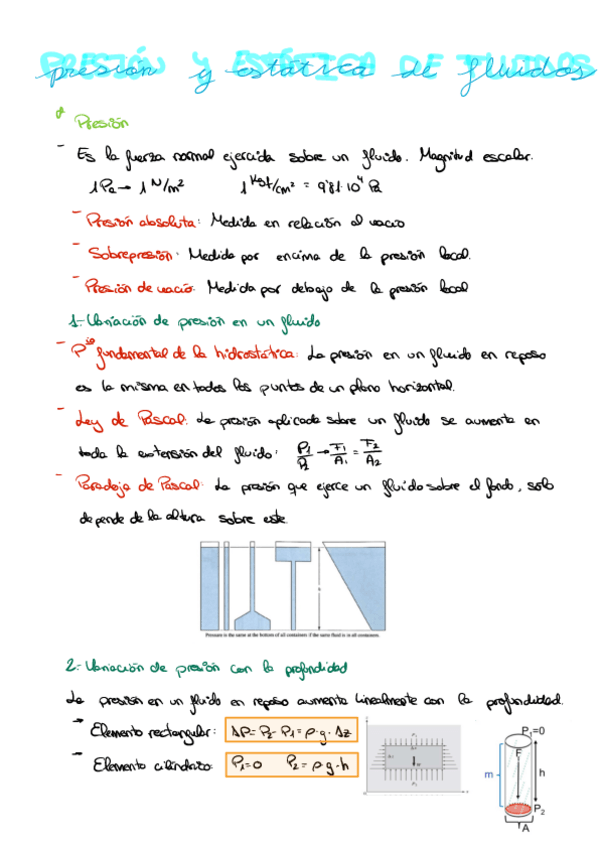 PRESIÓN Y ESTÁTICA DE FLUIDOS
presión y estática de fluidos
Presión
- Es la fuerza normal ejercida sobre un fluido. Magnitud escalar.
1 Pa → 1 N/m² 1 Kgf/cm² = 9'81·10⁴ Pa
- Presión absoluta: Medida en relación al vacío
- Sobrepresión: Medida por encima de la presión local.
- Presión de vacío: Medida por debajo de la presión local
1.- Variación de presión en un fluido
- Pio fundamental de la hidrostática: La presión en un fluido en reposo
es la misma en todos los puntos de un plano horizontal.
- Ley de Pascal: La presión aplicada sobre un fluido se aumenta en
toda la extensión del fluido: P1/P2 → F1/A1 = F2/A2
- Paradoja de Pascal: La presión que ejerce un fluido sobre el fondo, solo
depende de la altura sobre este.
h
Pressure is the same at the bottom of all containers if the same fluid is in all containers.
2.- Variación de presión con la profundidad
La presión en un fluido en reposo aumenta linealmente con la profundidad.
→ Elemento rectangular: ΔP = P2 - P1 = ρ·g·Δz
- Elemento cilíndrico: P1=0 P2 = ρ·g·h
P1=0
F
m
h
P2
A